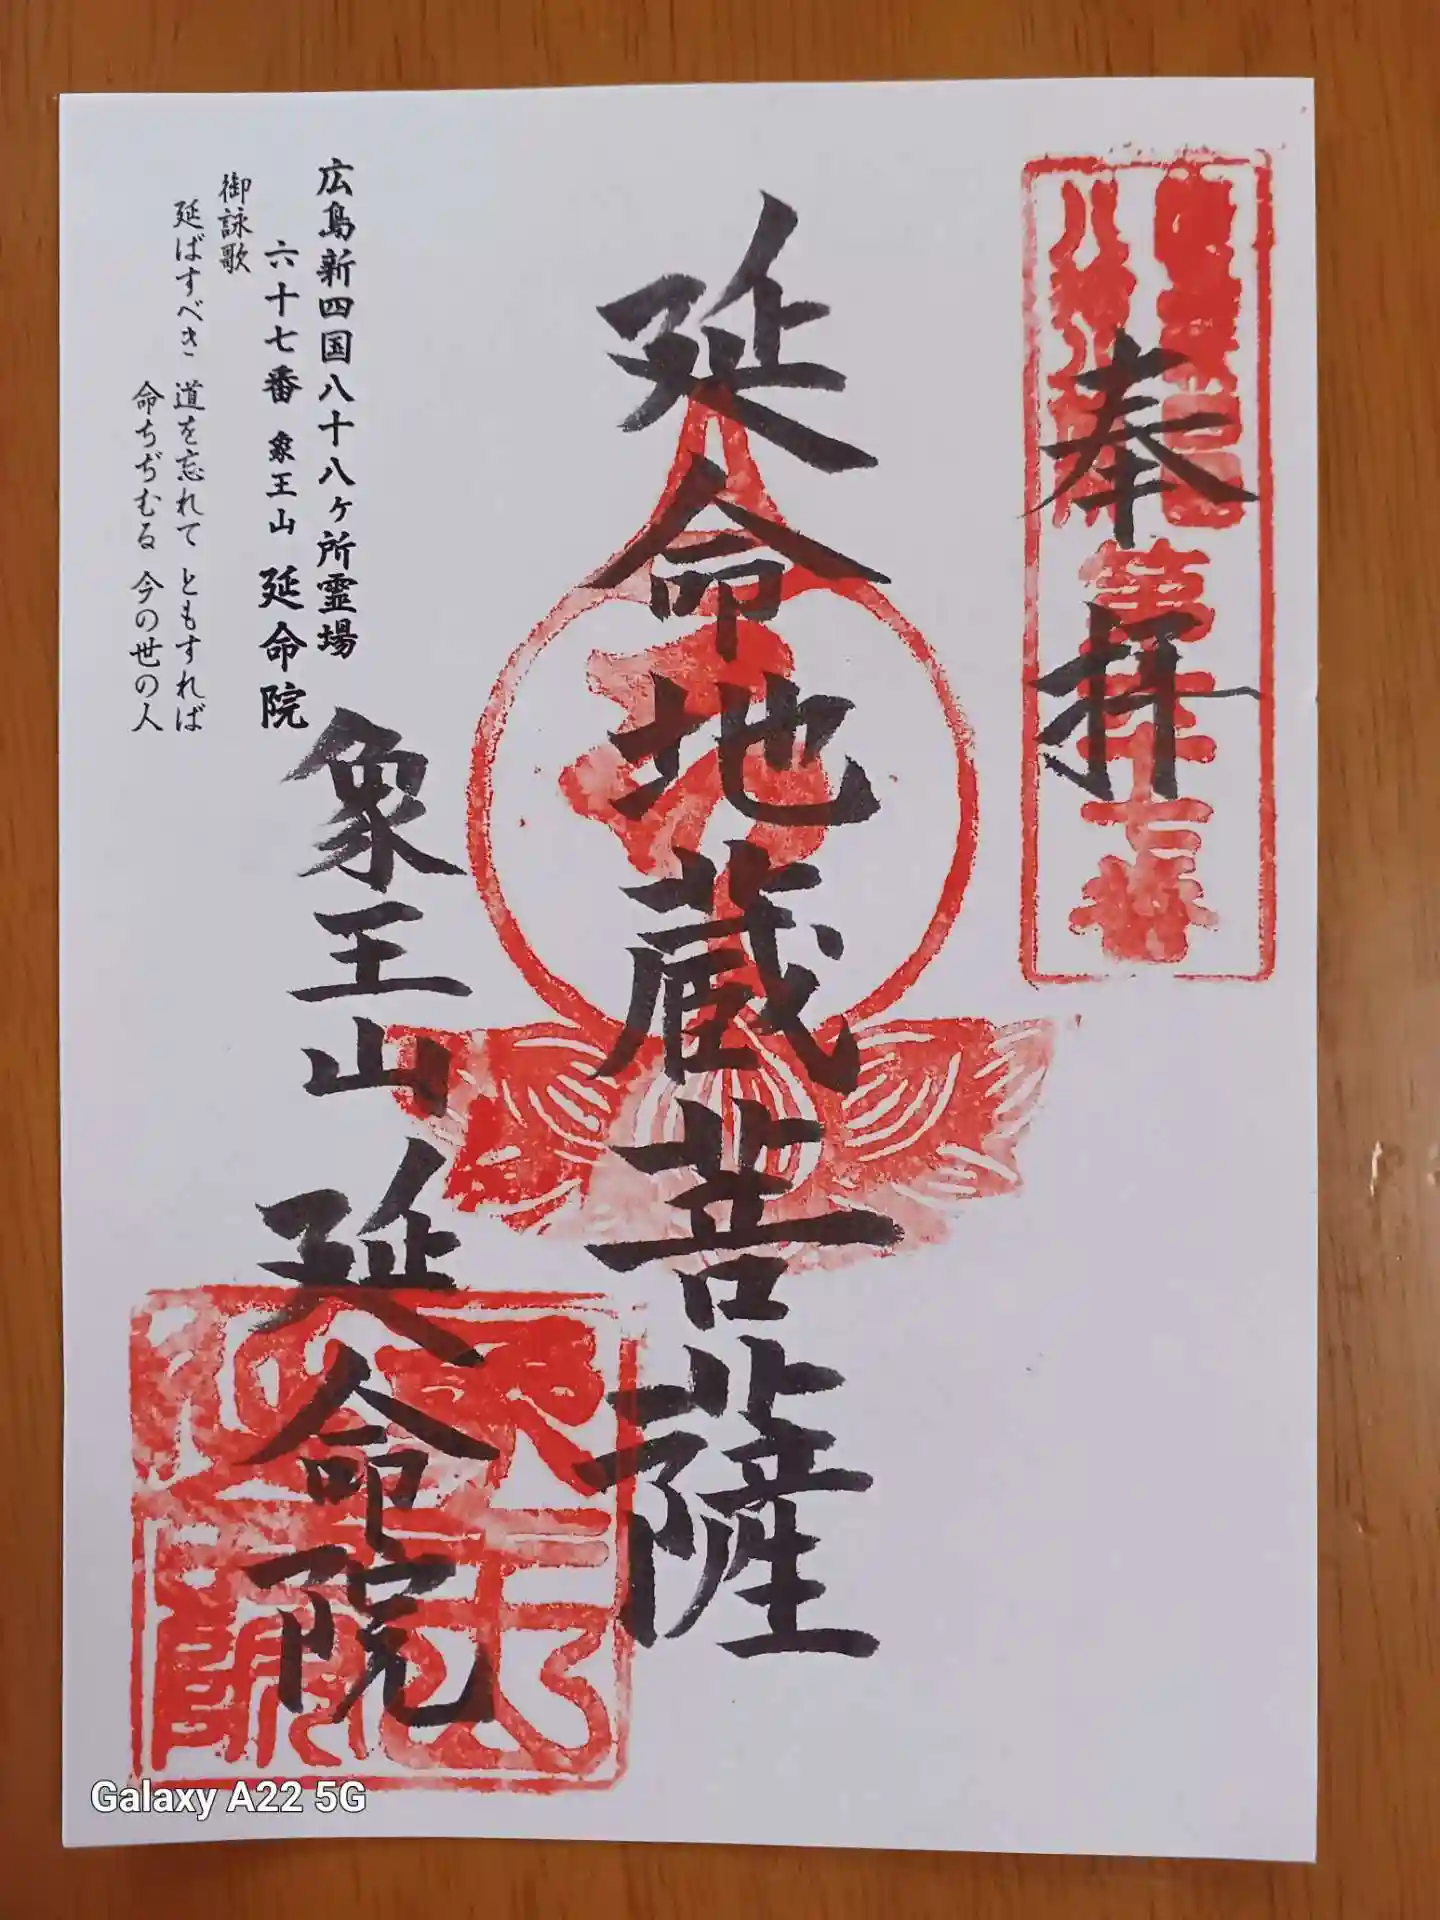 奉拝
第六十七番
延命地蔵菩薩
象王山 延命院
広島新四国八十八ヶ所霊場
六十七番 象王山 延命院
御詠歌
延ばすべき 道を忘れて ともすれば
命ちぢむる 今の世の人
Galaxy A22 5G